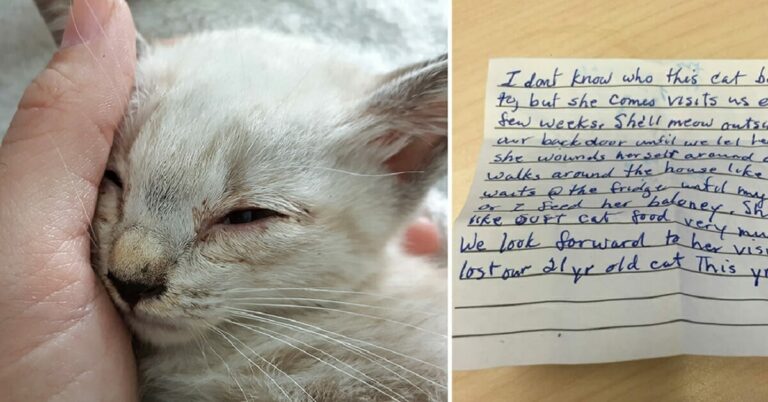 I dont know who this cat b
to, but she comes visits us e
few weeks. She'll meow outs
our back door until we let he
she wounds herself around
walks around the house like
waits @ the fridge until my
or I feed her baloney. Sh
like cat food very mu
We look forward to her vis
lost our 21 yr old cat This y